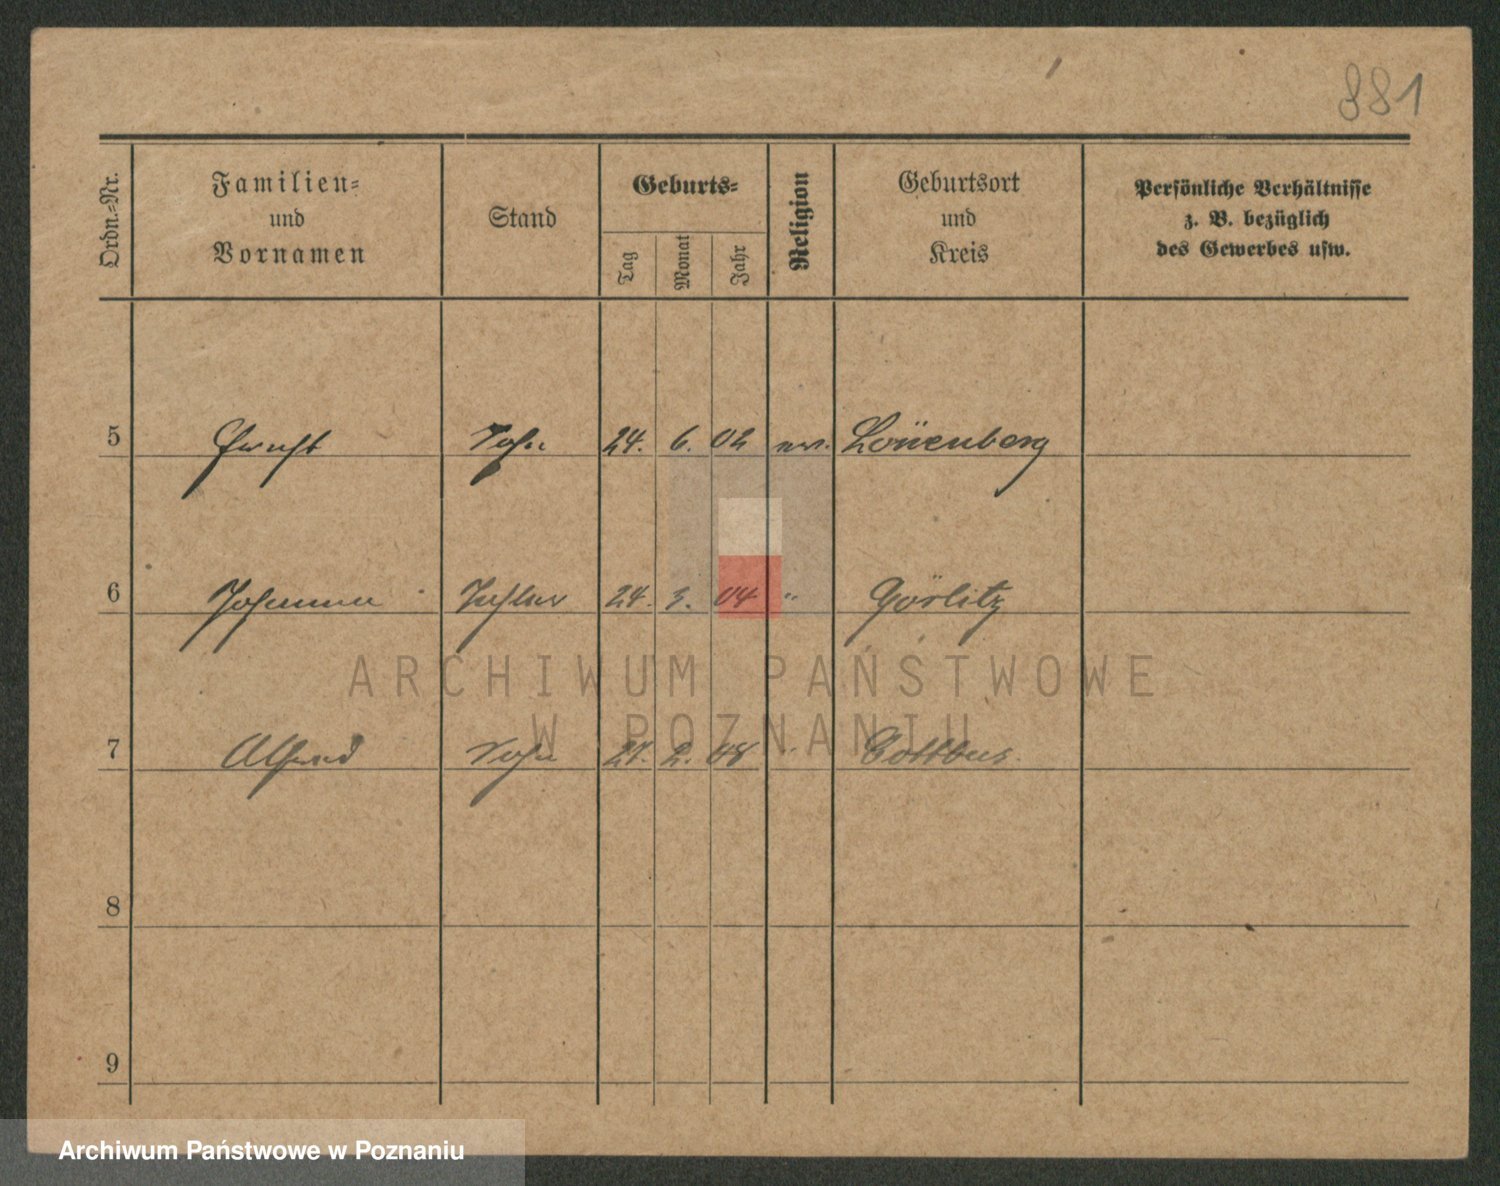 881
Ordn.-Nr.
Familien-
und
Vornamen
Stand
Geburts-
Tag
Monat
Jahr
Religion
Geburtsort
und
Kreis
Persönliche Verhältnisse
z. B. bezüglich
des Gewerbes usw.
5 Sohn 24. 6. 02 Löwenberg
6 Johanna Tochter 24. 3. 04 " Görlitz
ARCHIWUM PAŃSTWOWE
W POZNANIU
7 Alfred Sohn 2. 08 " Cottbus.
8
9
Archiwum Państwowe w Poznaniu